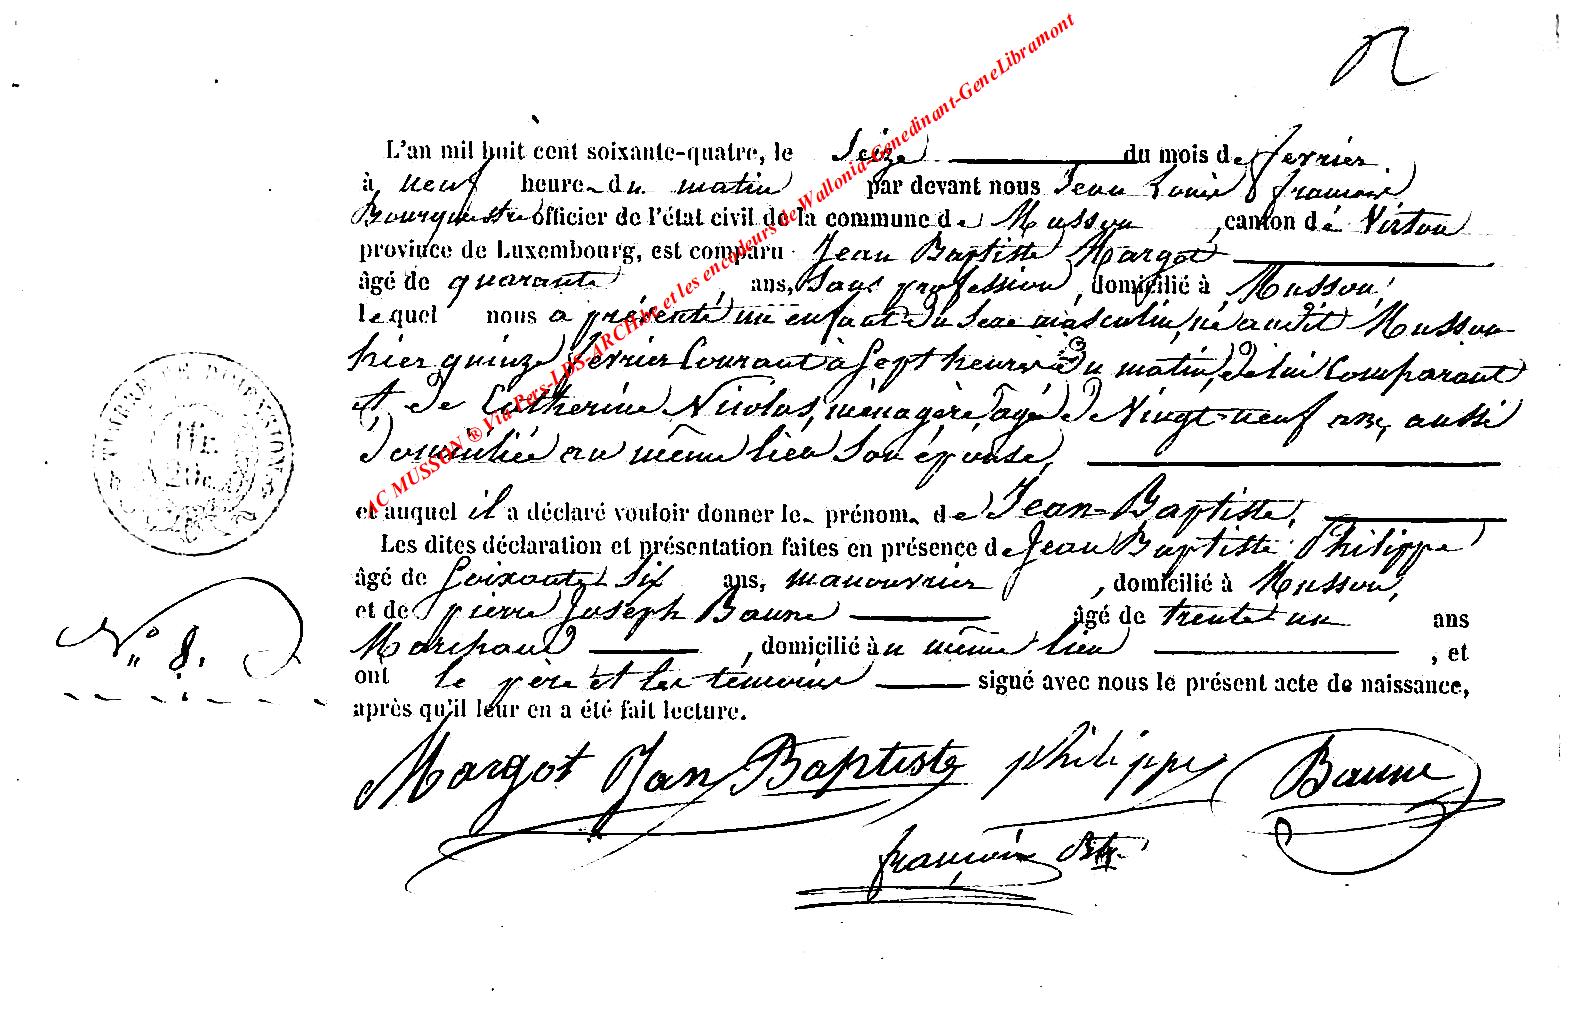 L'an mil huit cent soixante-quatre, le Seize du mois de fevrier
à neuf heures du matin par devant nous Jean Louis françois
Bourgmestre officier de l'état civil de la commune de Musson, canton de Virton
province de Luxembourg, est comparu Jean Baptiste Margot
âgé de quarante ans, Sans profession, domicilié à Musson,
lequel nous a présenté un enfant du Sexe masculin, né audit Musson
hier quinze fevrier Courant à Sept heures du matin, de lui Comparant
et de Catherine Nicolas, ménagère, âgée de Vingt-neuf ans, aussi
domiciliée au même lieu Son épouse,
et auquel il a déclaré vouloir donner le prénom de Jean-Baptiste.
Les dites déclaration et présentation faites en présence de Jean Baptiste Philippe
âgé de Soixante Six ans, manouvrier, domicilié à Musson,
et de pierre Joseph Baune âgé de trente un ans
Marchand, domicilié au même lieu, et
ont le père et les témoins signé avec nous le présent acte de naissance,
après qu'il leur en a été fait lecture.
TIMBRE DE DIMENSION
1 FR.
20 c.
N° 8.
Margot Jan Baptiste philippe Baune
françois
AC MUSSON ® Via Pers-LDS-ARCH.be et les encodeurs de Wallonia-Genedinant-GeneLibramont